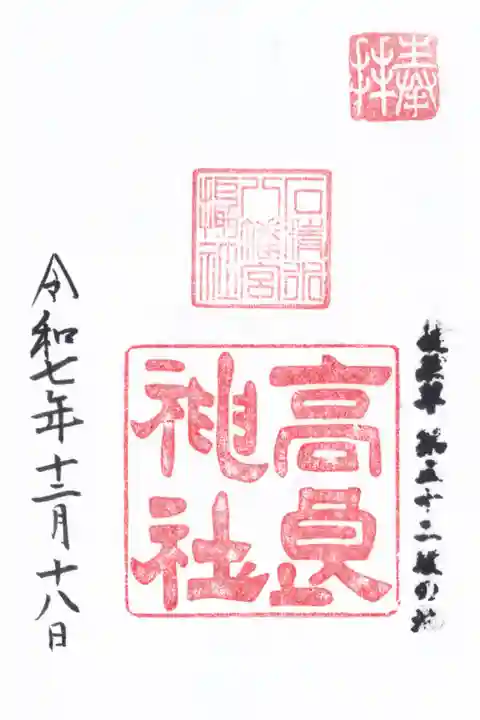 奉拝
石清水
八幡宮
摂社
徒然草 第五十二段の地
高良
神社
令和七年十二月十八日